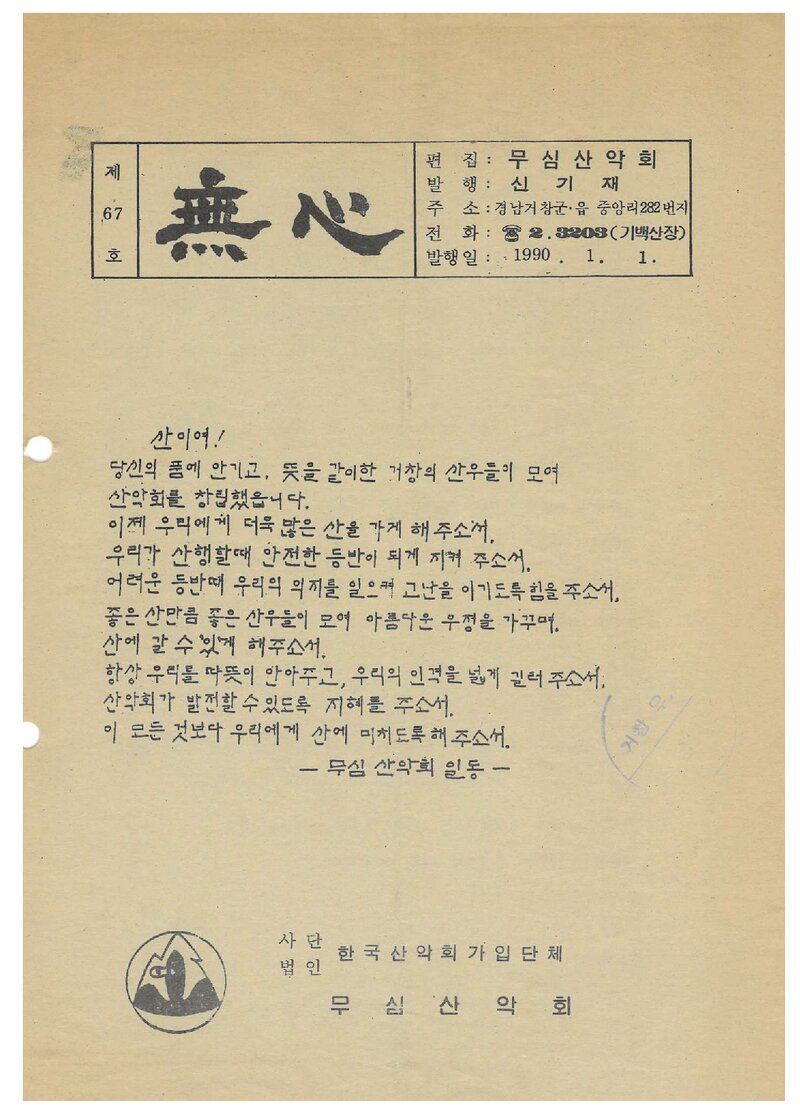 제
67
호
無心
편 집 : 무심산악회
발 행 : 신 기 재
주 소 : 경남거창군·읍 중앙리282번지
전 화 : ☎ 2.3203(기백산장)
발행일 : 1990. 1. 1.
산이여!
당신의 품에 안기고, 뜻을 같이한 거창의 산우들이 모여
산악회를 창립했읍니다.
이제 우리에게 더욱 많은 산을 가게 해 주소서.
우리가 산행할때 안전한 등반이 되게 지켜 주소서.
어려운 등반때 우리의 의지를 일으켜 고난을 이기도록힘을 주소서.
좋은 산만큼 좋은 산우들이 모여 아름다운 우정을 가꾸며.
산에 갈 수 있게 해주소서.
항상 우리를 따뜻이 안아주고, 우리의 인격을 넓게 길러 주소서.
산악회가 발전할 수 있도록 지혜를 주소서.
이 모든 것보다 우리에게 산에 미치도록 해 주소서.
— 무심 산악회 일동 —
거창
사단
법인
한국산악회가입단체
무심산악회